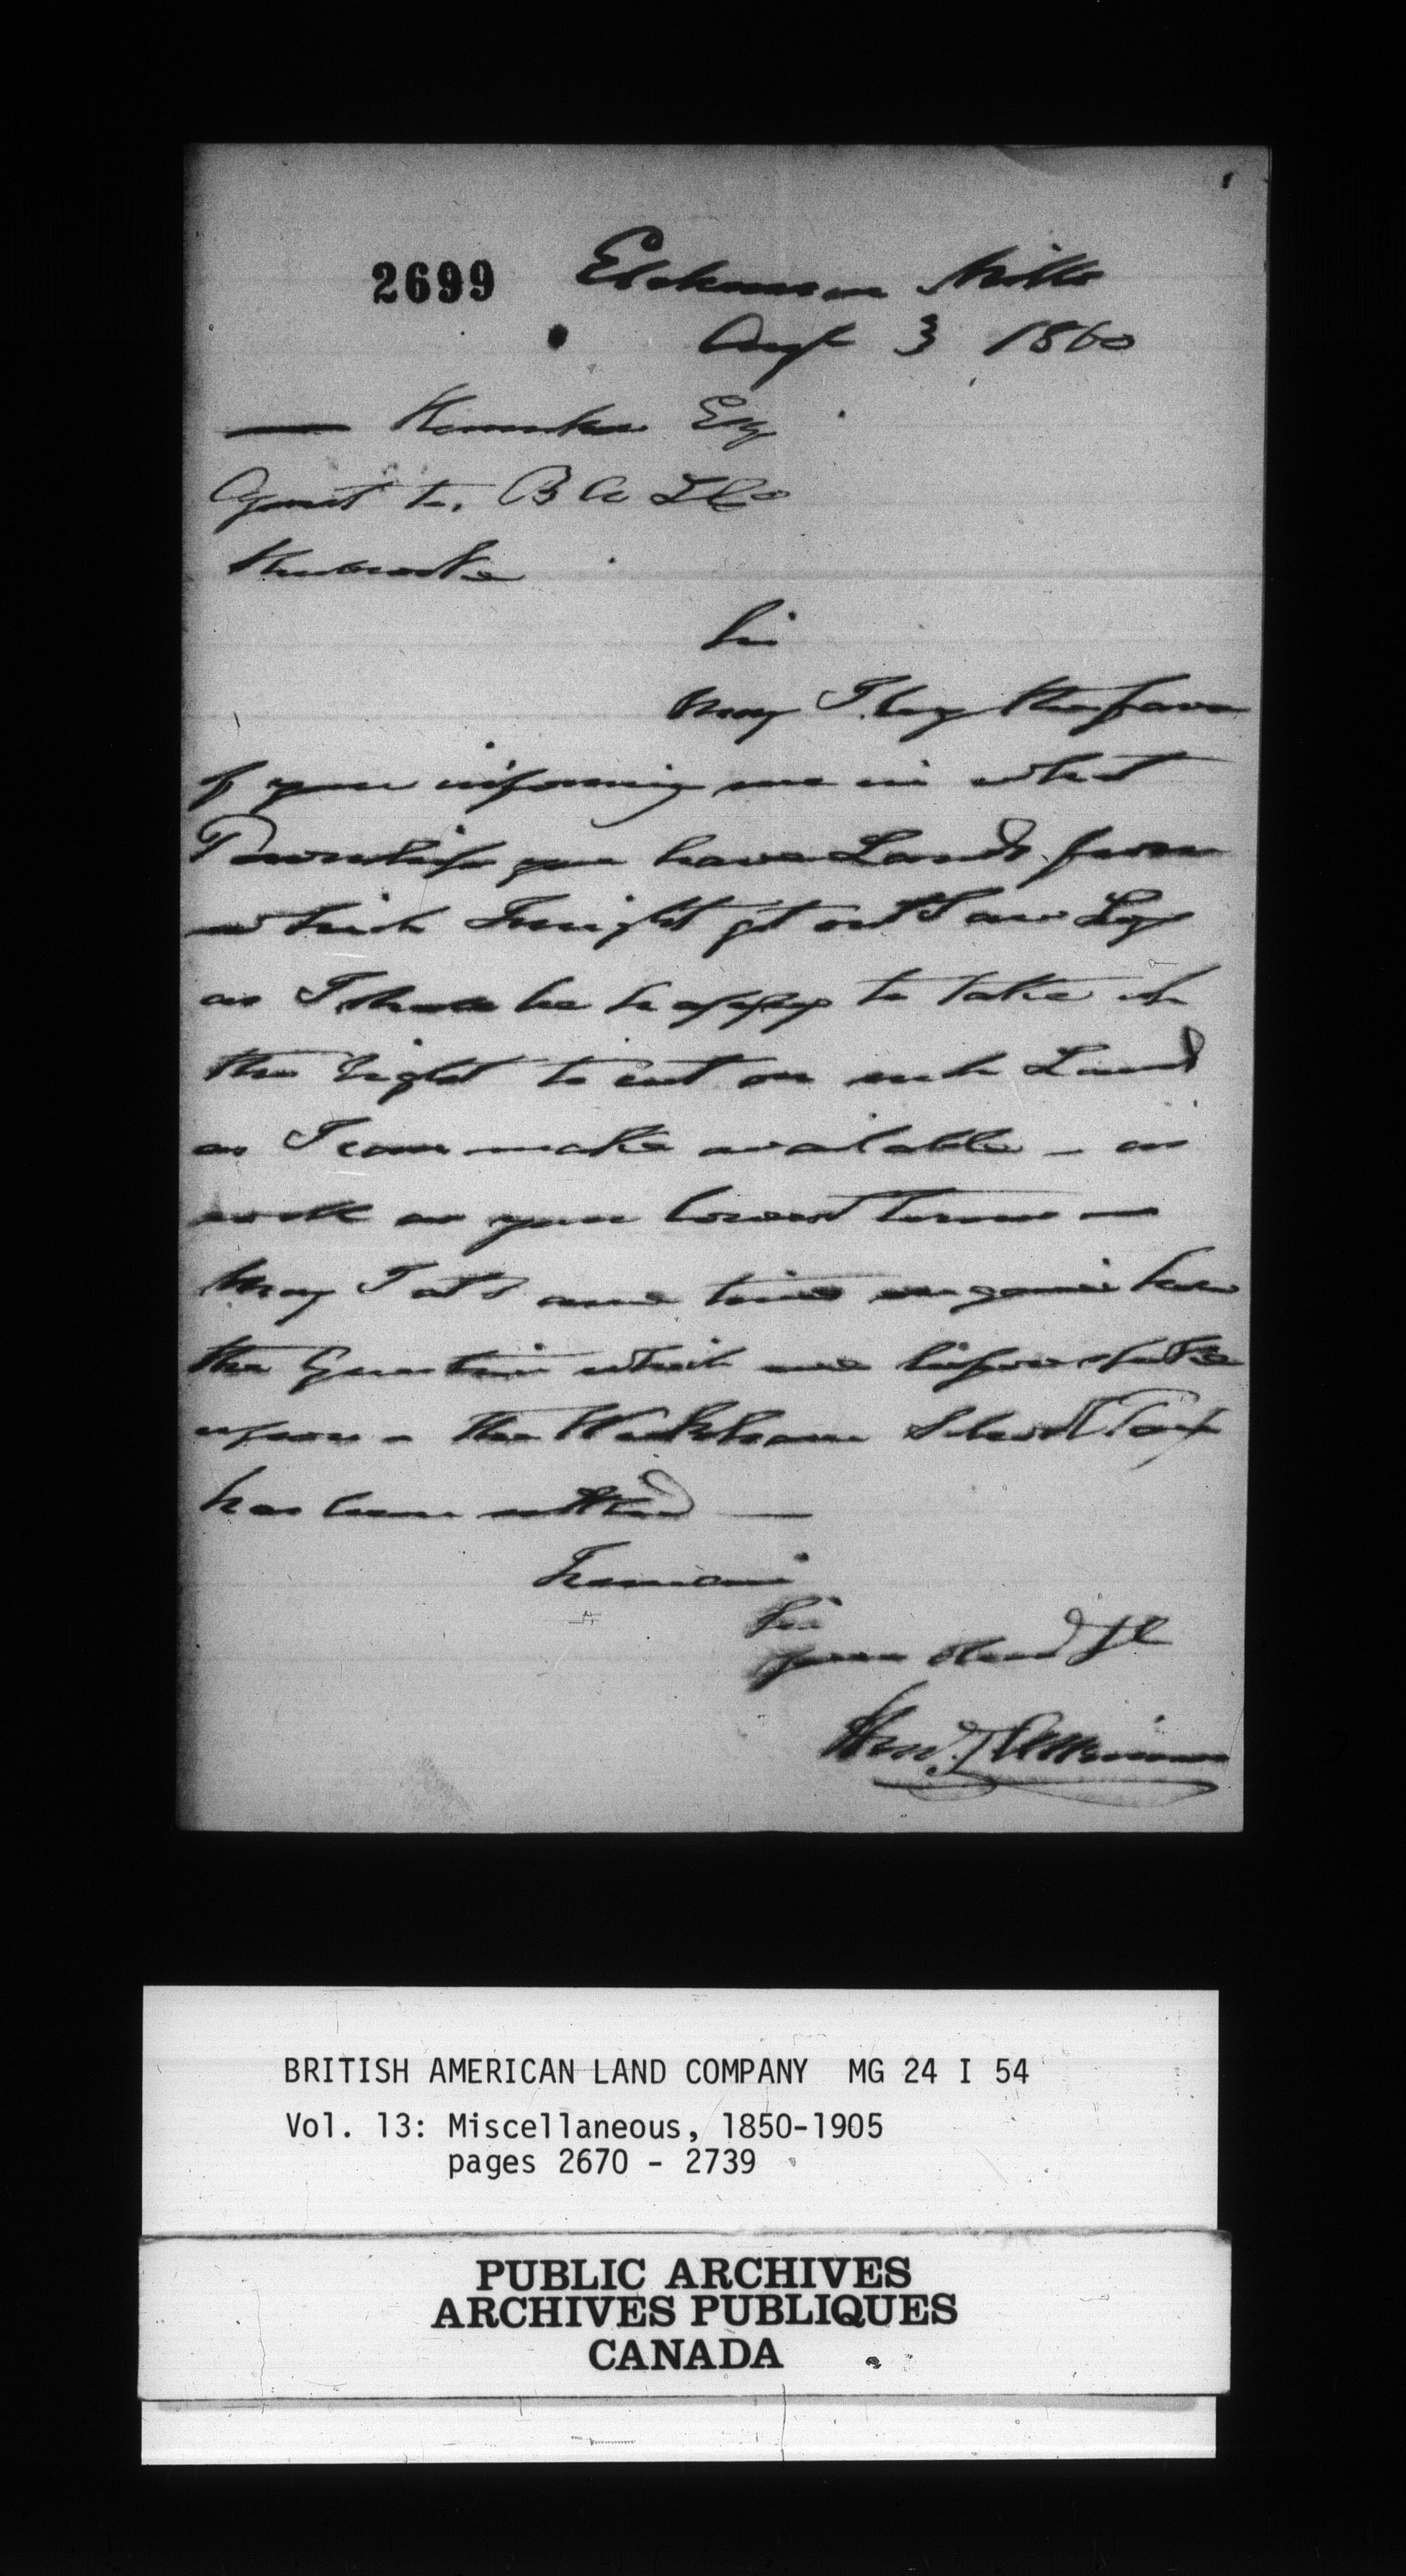 2699
Etchemin Mills
Augt 3 1860
Esq
Agent to. B A L Co
Sherbrooke
Sir
May I beg the favor
of your informing me in what
Townships you have Lands from
which I might get out Saw Logs
as I shall be happy to take
the right to cut on such Land
as I can make available - as
well as your lowest terms -
May I at same time enquire how
the Question which we before spoke
upon - the Wickham School Tax
has been settled -
I remain
Sir
your obed St
Atkinson
BRITISH AMERICAN LAND COMPANY MG 24 I 54
Vol. 13: Miscellaneous, 1850-1905
pages 2670 - 2739
PUBLIC ARCHIVES
ARCHIVES PUBLIQUES
CANADA